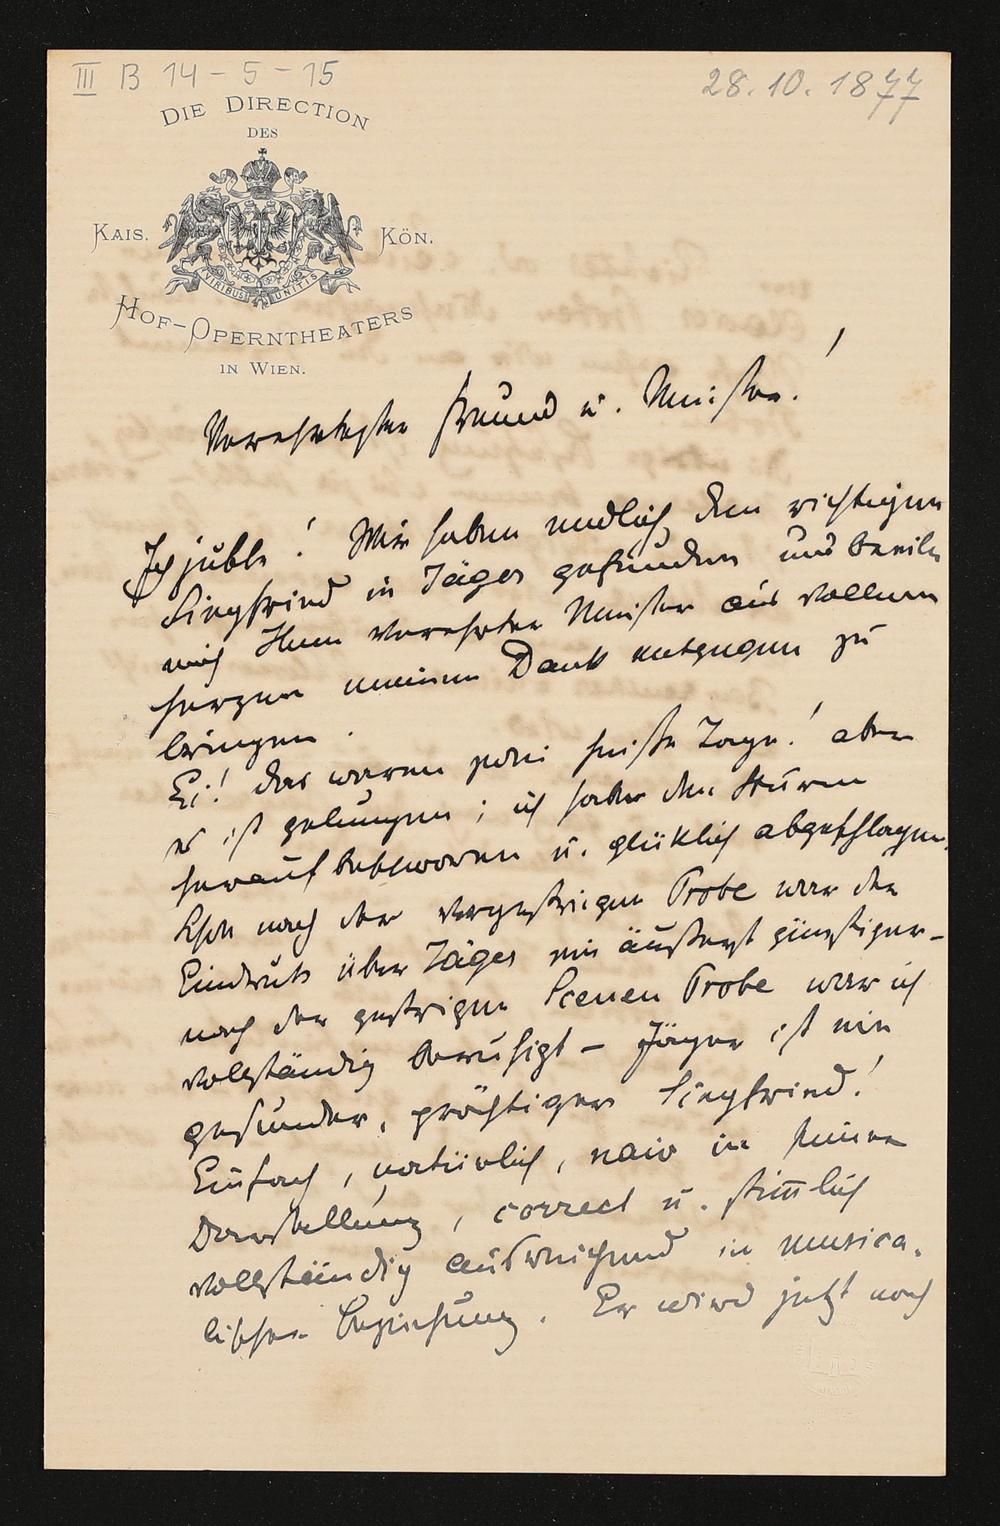 III B 14-5-15
28.10.1877
DIE DIRECTION
DES
KAIS. KÖN.
VIRIBUS UNITIS
HOF-OPERNTHEATERS
IN WIEN.
Verehrtester Freund u. Meister!
Ich juble! Wir haben endlich den richtigen
Siegfried in Jäger gefunden und beeile
mich Ihnen verehrter Meister aus vollem
Herzen meinen Dank entgegen zu
bringen.
Ei! das waren heiße Tage! aber
es ist gelungen; ich habe den Sturm
herauf beschworen u. glüklich abgeschlagen.
Schon nach der vorgestrigen Probe war der
Eindruck über Jäger ein äußerst günstiger –
nach der gestrigen Scenen Probe war ich
vollständig beruhigt – Jäger ist ein
gesunder, prächtiger Siegfried!
Einfach, natürlich, naiv in seiner
Darstellung, correct u. stimlich
vollständig ausreichend in musica-
lischer Beziehung. Er wird jetzt noch